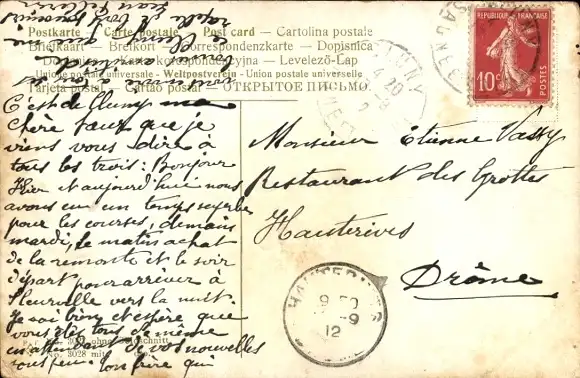 Postkarte - Carte postale - Post card - Cartolina postale
Briefkaart - Brefkort - Correspondenzkarte - Dopisnica
korespondencyjna - Levelező-Lap
Union postale universelle - Weltpostverein - Union postale universelle
Tarjeta postal - Cartão postal - ОТКРЫТОЕ ПИСЬМО
RÉPUBLIQUE FRANÇAISE
10c
POSTES
CLUNY
C'est de Cluny ma
chère sœur que je
viens vous dire à
tous les trois : Bonjour
Hier et aujourd'hui nous
avons eu un temps superbe
pour les courses, demain
mardi, le matin achat
de la remonte et le soir
départ pour arriver à
Fleurville vers la nuit.
Je vais bien et espère que
vous êtes tous de même
en attendant de vos nouvelles
Ton frère qui
Monsieur Etienne Vassy
Restaurant des Grottes
Hauterives
Drôme
HAUTERIVES
-9
12
No. 3028